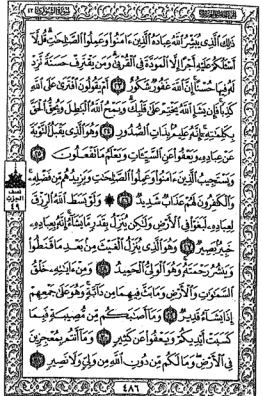 ذَٰلِكَ الَّذِي يُبَشِّرُ اللَّهُ عِبَادَهُ الَّذِينَ ءَامَنُوا وَعَمِلُوا الصَّالِحَاتِ قُل لَّا
أَسْأَلُكُمْ عَلَيْهِ أَجْرًا إِلَّا الْمَوَدَّةَ فِي الْقُرْبَىٰ وَمَن يَقْتَرِفْ حَسَنَةً نَّزِدْ
لَهُ فِيهَا حُسْنًا إِنَّ اللَّهَ غَفُورٌ شَكُورٌ ٢٣ أَمْ يَقُولُونَ افْتَرَىٰ عَلَى اللَّهِ
كَذِبًا فَإِن يَشَإِ اللَّهُ يَخْتِمْ عَلَىٰ قَلْبِكَ وَيَمْحُ اللَّهُ الْبَاطِلَ وَيُحِقُّ الْحَقَّ
بِكَلِمَاتِهِ إِنَّهُ عَلِيمٌ بِذَاتِ الصُّدُورِ ٢٤ وَهُوَ الَّذِي يَقْبَلُ التَّوْبَةَ
عَنْ عِبَادِهِ وَيَعْفُو عَنِ السَّيِّئَاتِ وَيَعْلَمُ مَا تَفْعَلُونَ ٢٥
وَيَسْتَجِيبُ الَّذِينَ ءَامَنُوا وَعَمِلُوا الصَّالِحَاتِ وَيَزِيدُهُم مِّن فَضْلِهِ
وَالْكَافِرُونَ لَهُمْ عَذَابٌ شَدِيدٌ ٢٦ وَلَوْ بَسَطَ اللَّهُ الرِّزْقَ
لِعِبَادِهِ لَبَغَوْا فِي الْأَرْضِ وَلَٰكِن يُنَزِّلُ بِقَدَرٍ مَّا يَشَاءُ إِنَّهُ بِعِبَادِهِ
خَبِيرٌ بَصِيرٌ ٢٧ وَهُوَ الَّذِي يُنَزِّلُ الْغَيْثَ مِن بَعْدِ مَا قَنَطُوا
وَيَنشُرُ رَحْمَتَهُ وَهُوَ الْوَلِيُّ الْحَمِيدُ ٢٨ وَمِنْ ءَايَاتِهِ خَلْقُ
السَّمَاوَاتِ وَالْأَرْضِ وَمَا بَثَّ فِيهِمَا مِن دَابَّةٍ وَهُوَ عَلَىٰ جَمْعِهِمْ
إِذَا يَشَاءُ قَدِيرٌ ٢٩ وَمَا أَصَابَكُم مِّن مُّصِيبَةٍ فَبِمَا
كَسَبَتْ أَيْدِيكُمْ وَيَعْفُو عَن كَثِيرٍ ٣٠ وَمَا أَنتُم بِمُعْجِزِينَ
فِي الْأَرْضِ وَمَا لَكُم مِّن دُونِ اللَّهِ مِن وَلِيٍّ وَلَا نَصِيرٍ ٣١
نصف
الحزب
٤٩
٤٨٦